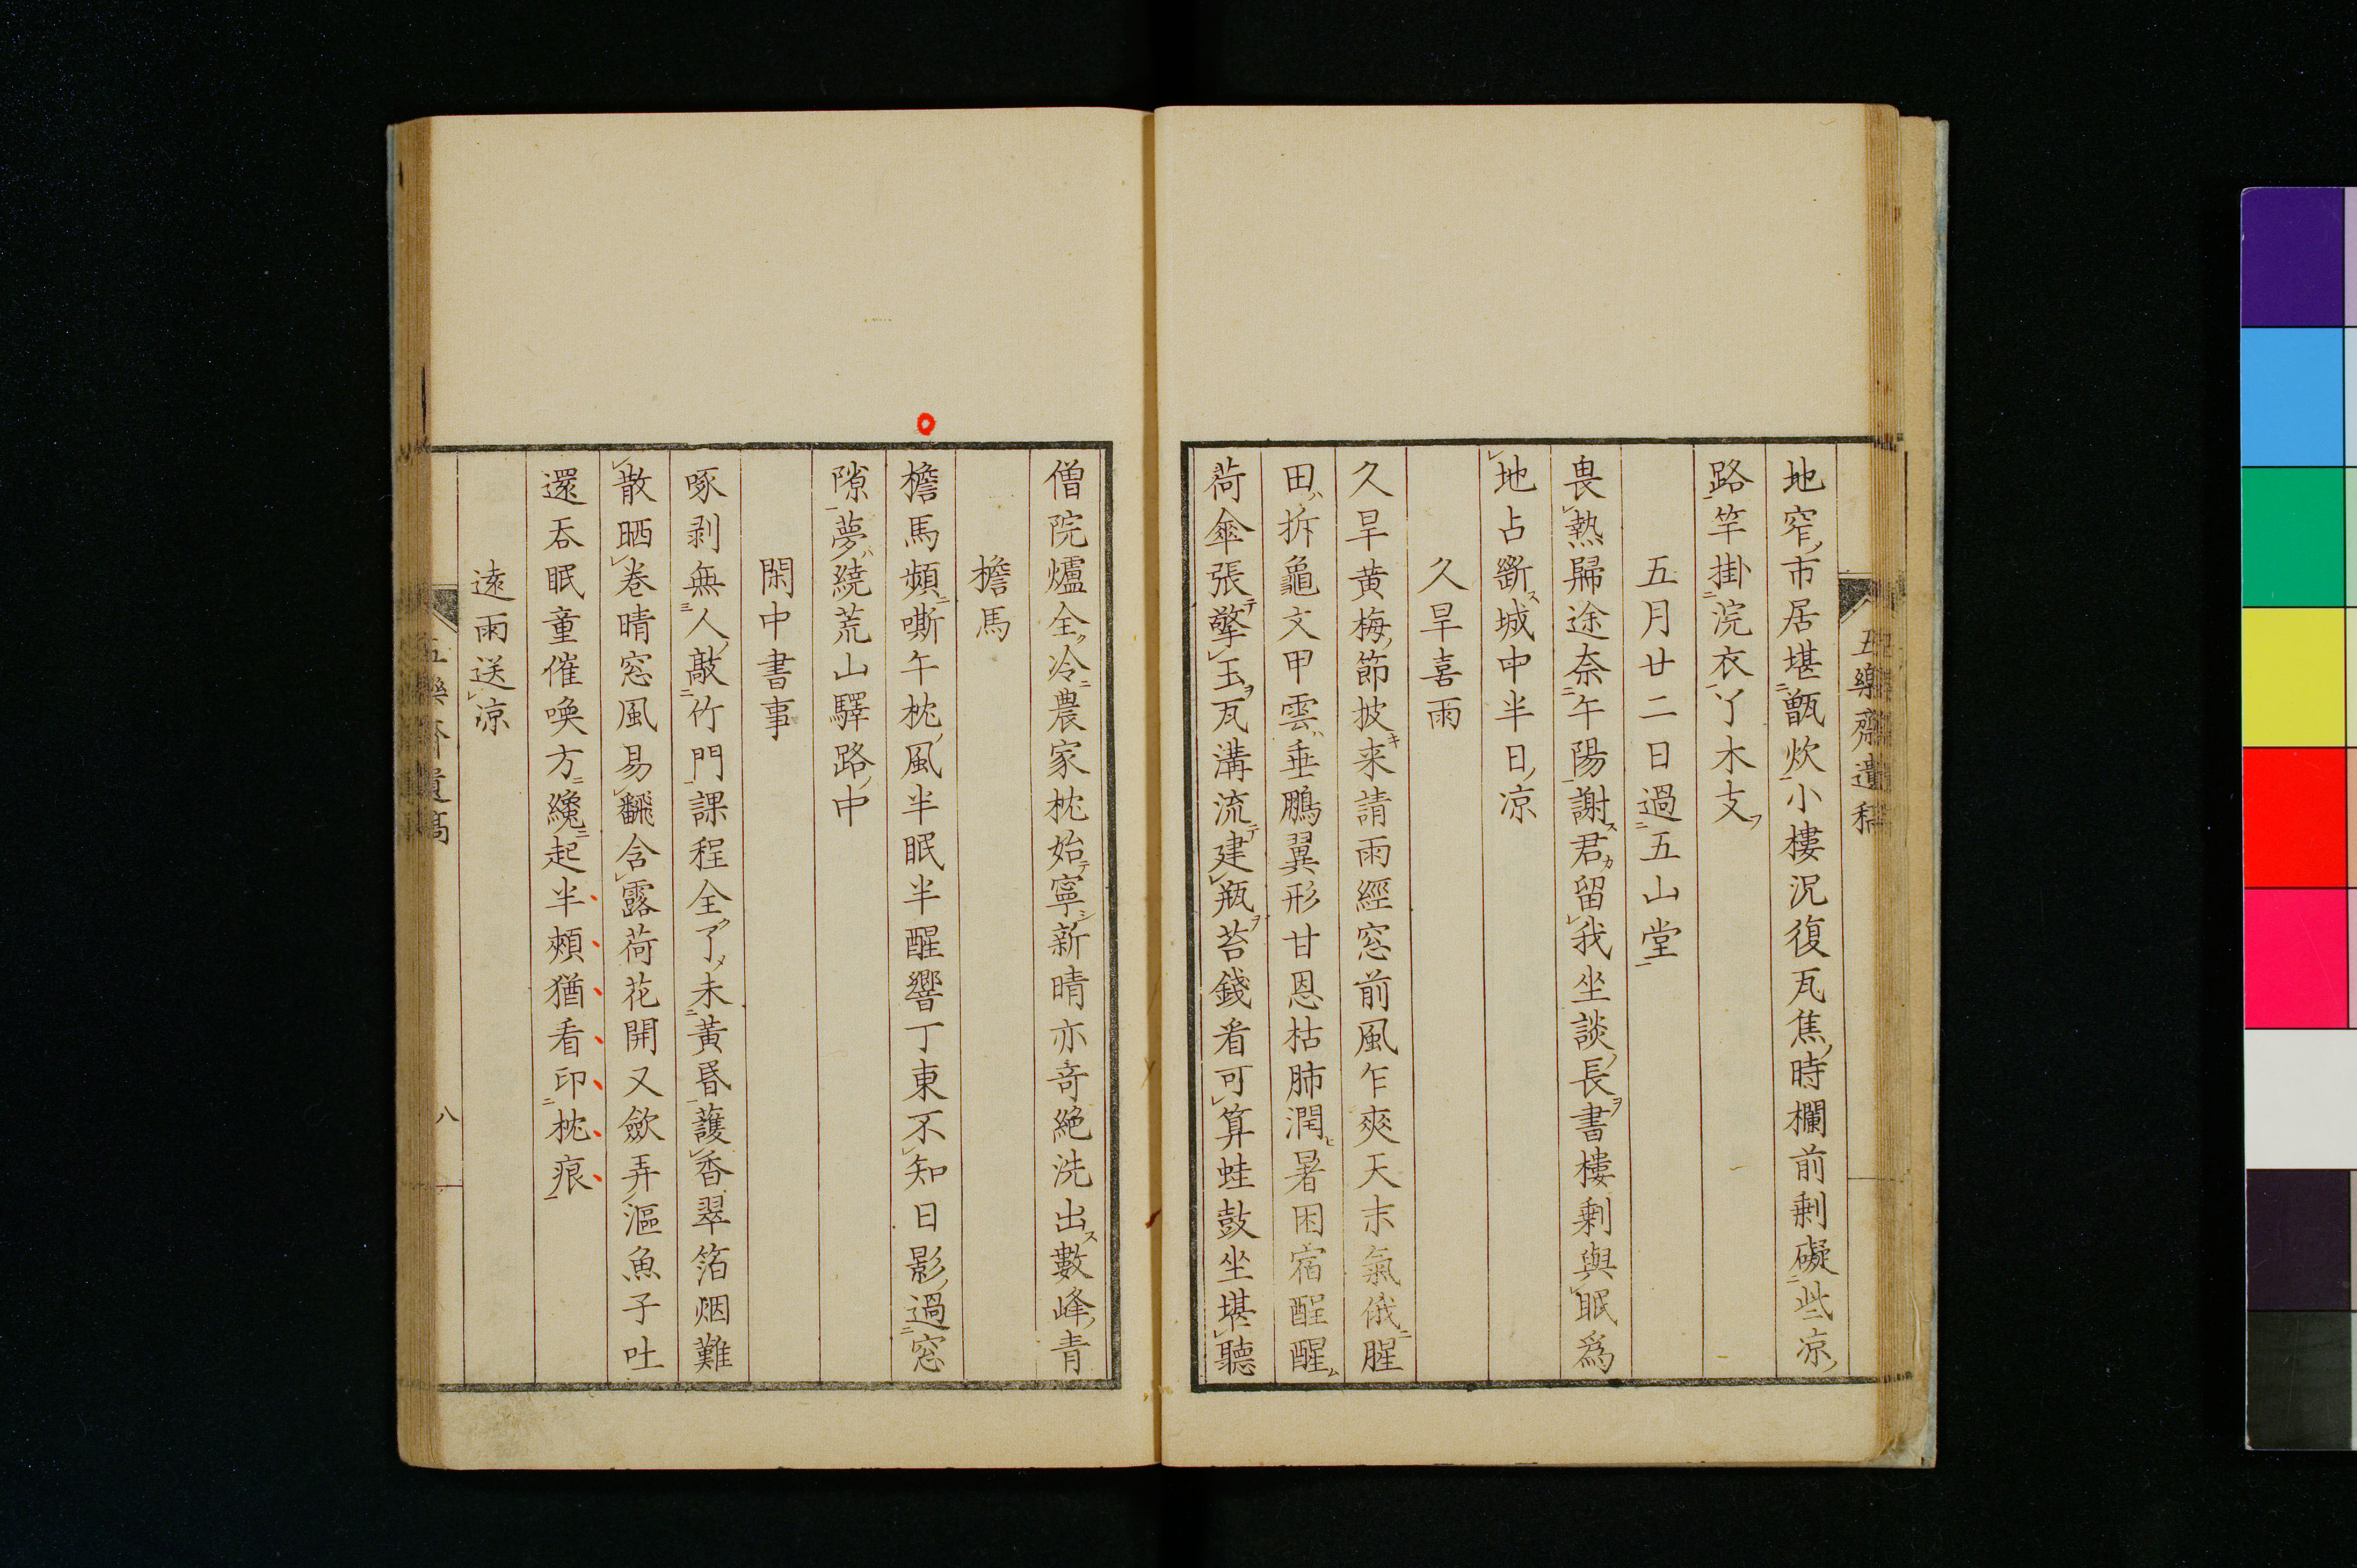 五樂齋遺稿
地窄市居堪甑炊小樓況復瓦焦時欄前剰礙些凉
路竿掛浣衣丫木支
五月廿二日過五山堂
畏熱歸途奈午陽謝君留我坐談長書樓剰與眠爲
地占斷城中半日凉
久旱喜雨
久旱黄梅節披来請雨經窓前風乍爽天末氣俄腥
田拆龜文甲雲垂鵬翼形甘恩枯肺潤暑困宿酲醒
荷傘張擎玉瓦溝流建瓶苔錢看可算蛙鼓坐堪聽
僧院爐全冷農家枕始寧新晴亦竒絶洗出數峰青
檐馬
檐馬頻嘶午枕風半眠半醒響丁東不知日影過窓
隙夢繞荒山驛路中
閑中書事
啄剥無人敲竹門課程全了未黃昏護香翠箔烟難
散晒巻晴窓風易飜含露荷花開又歛弄漚魚子吐
還呑眠童催喚方纔起半頰猶看印枕痕
遠雨送凉
五樂齋遺稿
八